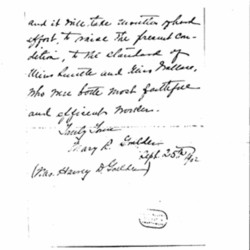 and it will take months of hard
effort, to raise the present con-
dition, to the standard of
Miss Lucille and Miss
who were both most faithful
and efficient
Truly Yours
Mary R. Goulder
Sept. 25th
(Mrs. Harvey D. Goulder)